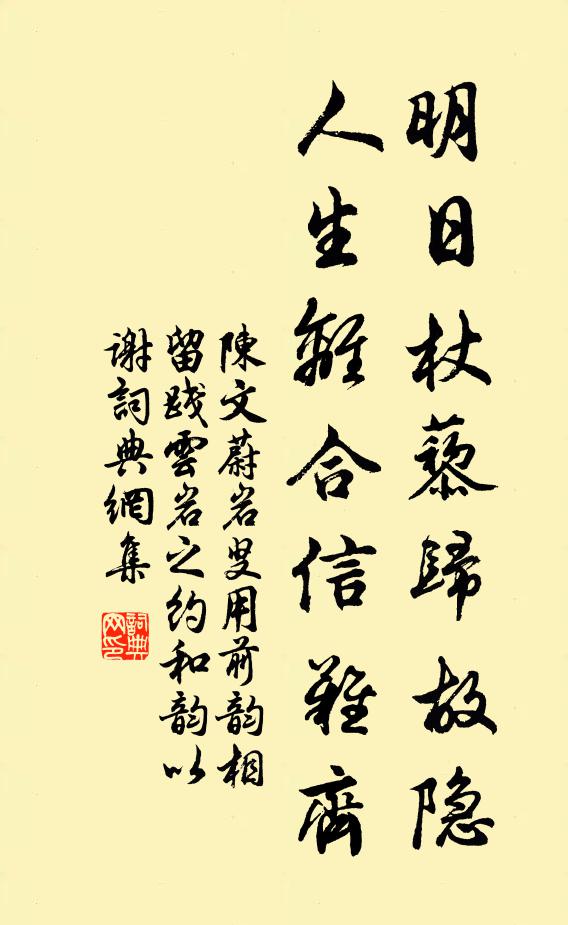 明日杖藜歸故隐
人生離合信難齊
陳文蔚岩叟用前韵相
留践雲岩之約和韵以
谢詞典網集
詞典網印